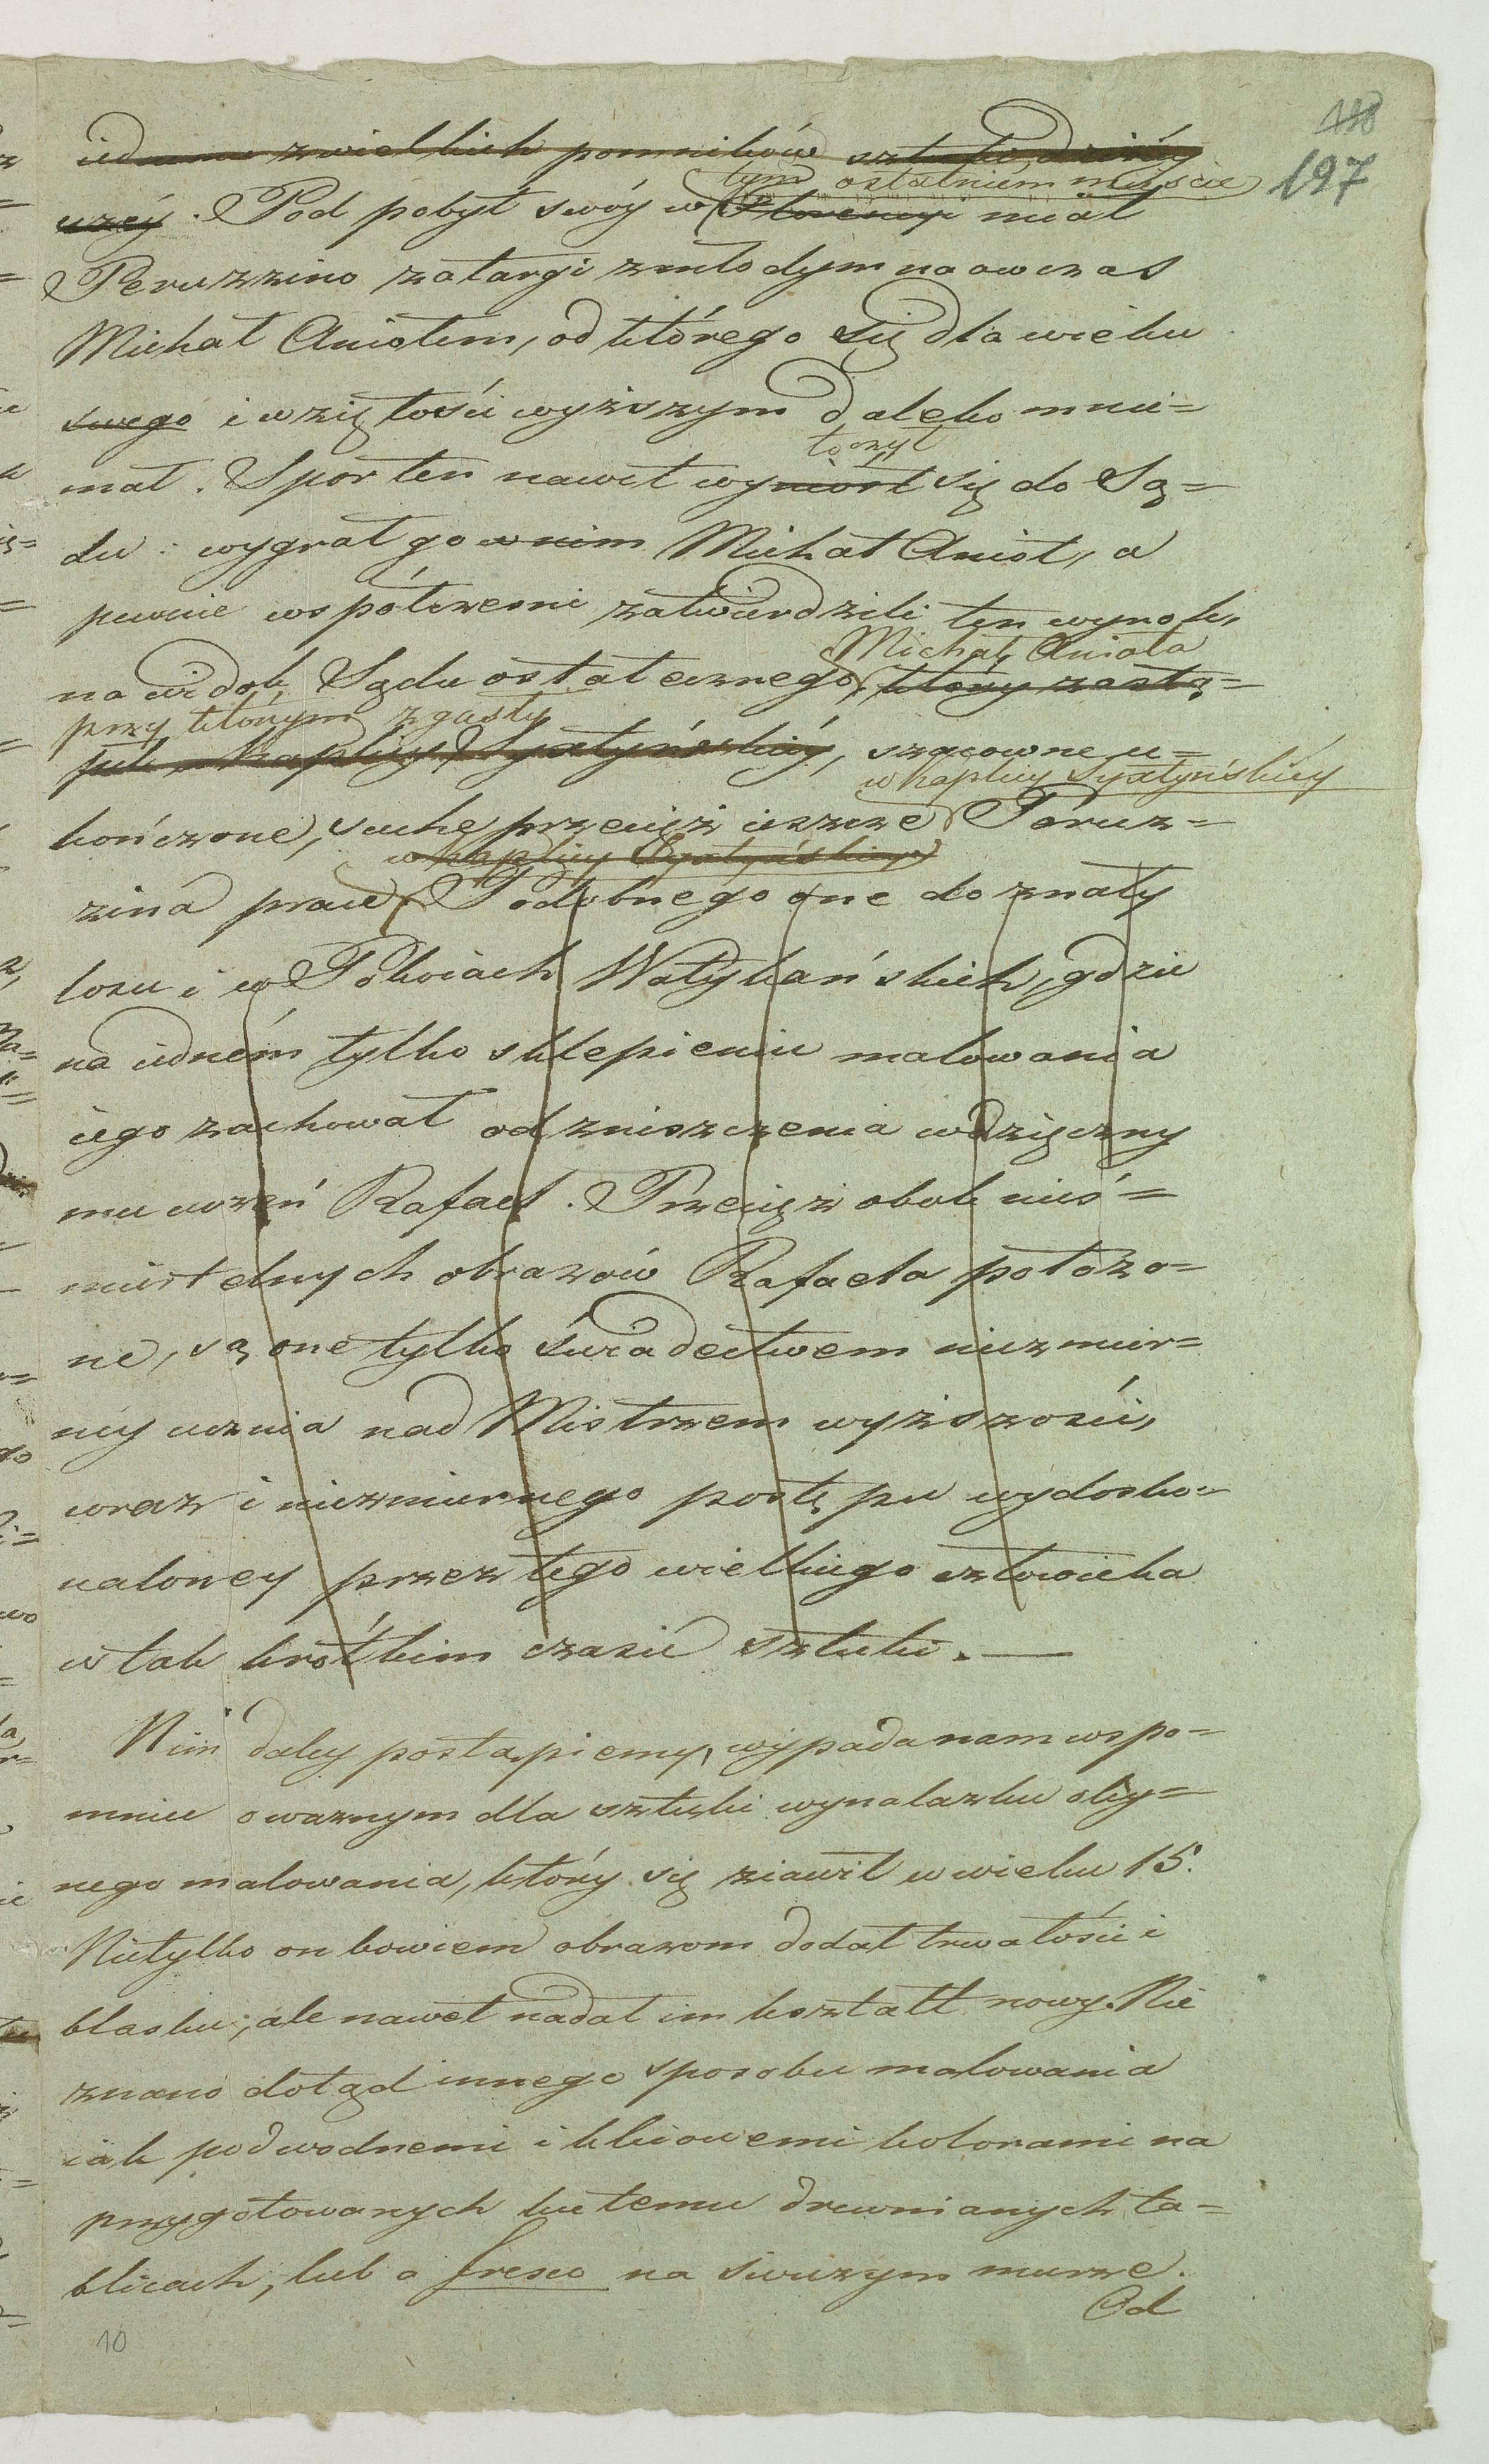 118
197
iednemu zwielkich pomników sztuki dziśey
uzéy. Pod pobyt swóy w Florencyi miał
tym ostatniém mieyscie
Peruzzino zatargi zmłodym naówczas
Michał Aniołem, od którego się dla wieku
swego i wziętości wyższym daleko mnie=
mał. Spor ten nawet wyniósł się do Są=
toczył
du: wygrał go w nim Michał Anioł, a
pewnie wspótczesni zatwierdzili ten wyrok,
na widok Sądu ostatecznego, który zastą=
Michał Anioła
przy którym zgasły
pił w Kaplicy Syxtyńskiéy, szacowne u=
w kaplicy Syxtyńskiéy
kończone, suche przecięż ieszcze Peruz=
w kaplicy Syxtyńskiey
zina prace. Podobnego one doznały
losu i w Pokoiach Watykańskich, gdzie
na iedném tylko sklepieniu malowania
iego zachował od zniszczenia wdzięczny
mu uczeń Rafael. Przecięż obok nieś=
miertelnych obrazów Rafaela położo=
ne, są one tylko świadectwem niezmier=
ney ucznia nad Mistrzem wyższości,
wraz i niezmiernego postępu wydosko=
naloney przez tego wielkiego człowieka
w tak krótkim czasie sztuki. —
Nim daley postąpiemy, wypada nam wspo=
mnieć o ważnym dla sztuki wynalazku oley=
nego malowania, który się ziawił w wieku 15.
Nietylko on bowiem obrazom dodał trwałości i
blasku; ale nawet nadał im kształt nowy. Nie
znano dotąd innego sposobu malowania
iak podwodnemi i kleiowemi kolorami na
przygotowanych ku temu drewnianych ta=
blicach, lub a fresco na świeżym murze.
Od
10